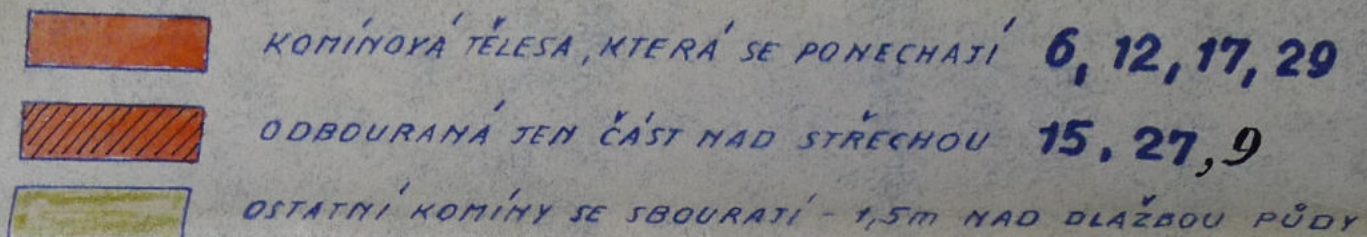 KOMÍNOVÁ TĚLESA, KTERÁ SE PONECHAJÍ 6, 12, 17, 29
ODBOURANÁ JEN ČÁST NAD STŘECHOU 15, 27, 9
OSTATNÍ KOMÍNY SE SBOURAJÍ - 1,5m NAD DLAŽBOU PŮDY